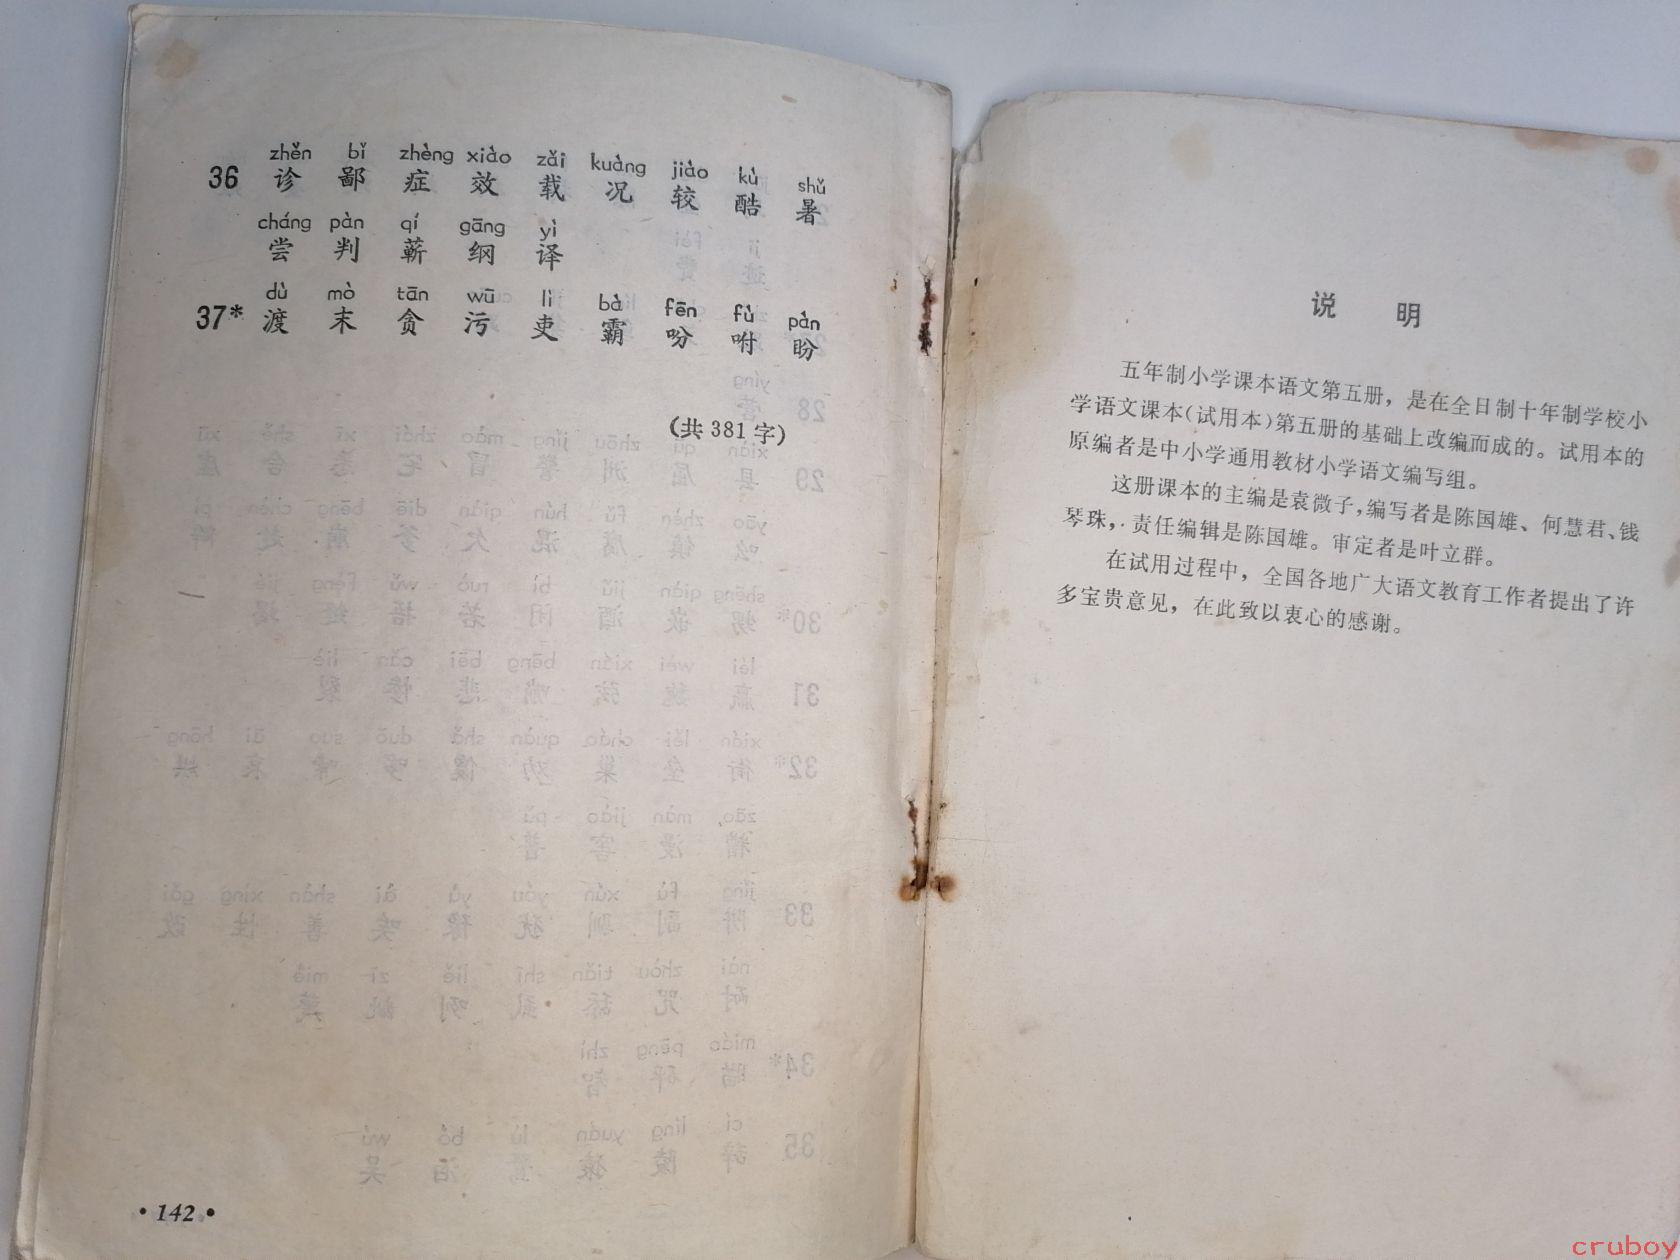 zhěn bǐ zhèng xiào zǎi kuàng jiào kù shǔ
36 诊 鄙 症 效 载 况 较 酷 暑
cháng pàn qí gāng yì
尝 判 蕲 纲 译
dù mò tān wū lì bà fēn fù pàn
37* 渡 末 贪 污 吏 霸 吩 咐 盼
(共 381 字)
• 142 •
说 明
五年制小学课本语文第五册，是在全日制十年制学校小
学语文课本(试用本)第五册的基础上改编而成的。试用本的
原编者是中小学通用教材小学语文编写组。
这册课本的主编是袁微子，编写者是陈国雄、何慧君、钱
琴珠，责任编辑是陈国雄。审定者是叶立群。
在试用过程中，全国各地广大语文教育工作者提出了许
多宝贵意见，在此致以衷心的感谢。
cruboy